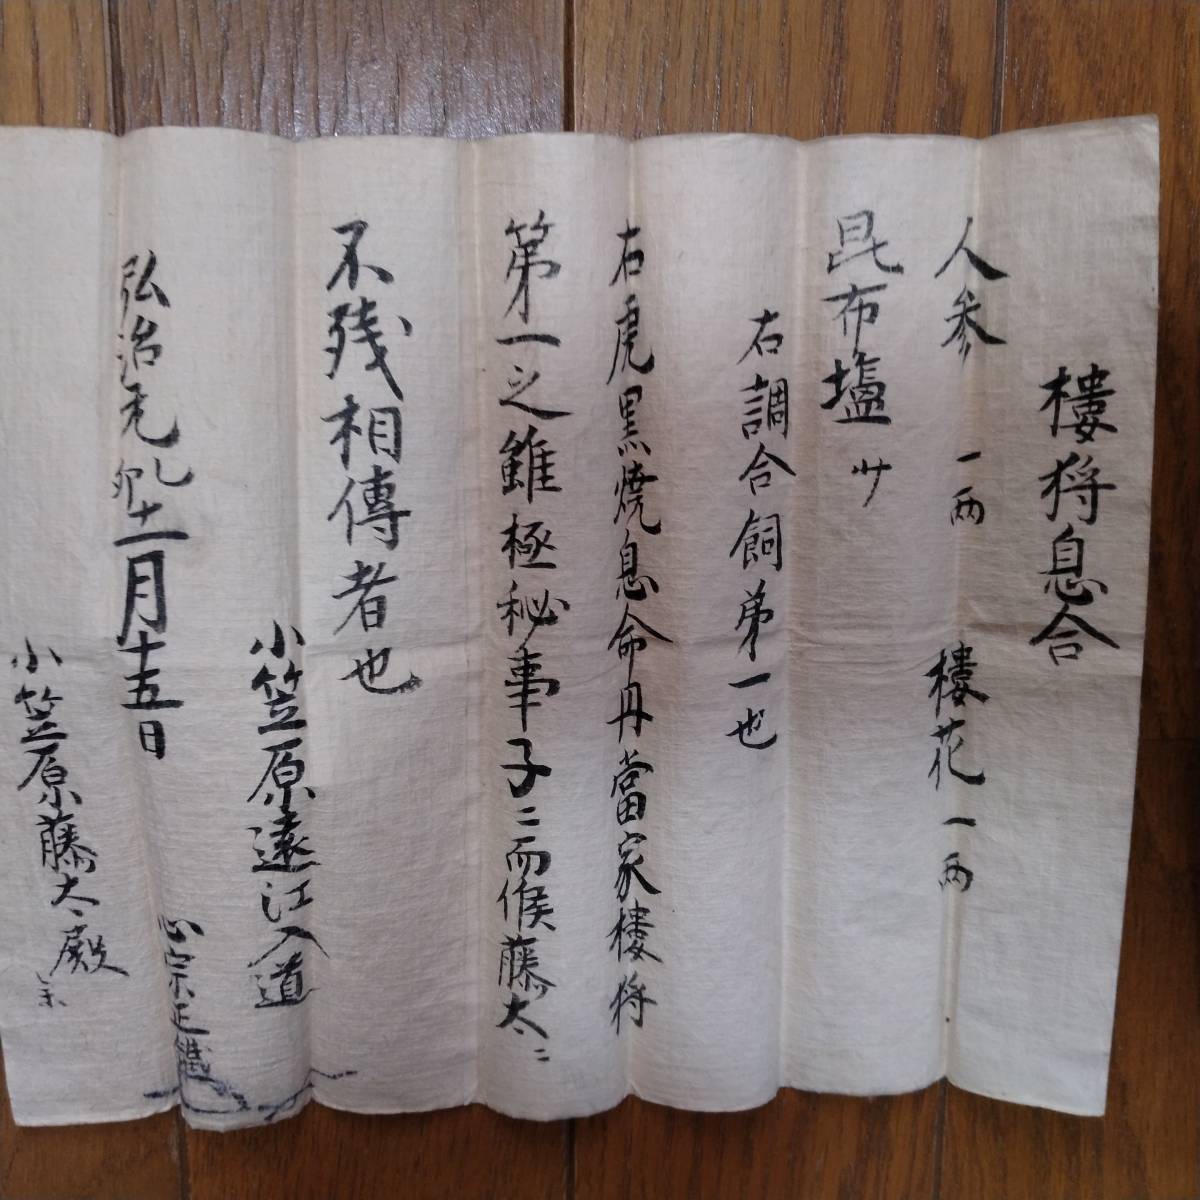 樓将息合
人参 一両 樓花 一両
昆布塩 廾
右調合飼弟一也
右虎黒焼息命丹當家樓将
第一之雖極秘事子ニ而候藤太ニ
不残相傳者也
小笠原遠江入道
弘治元乙卯十二月十五日
心宗
小笠原藤太殿